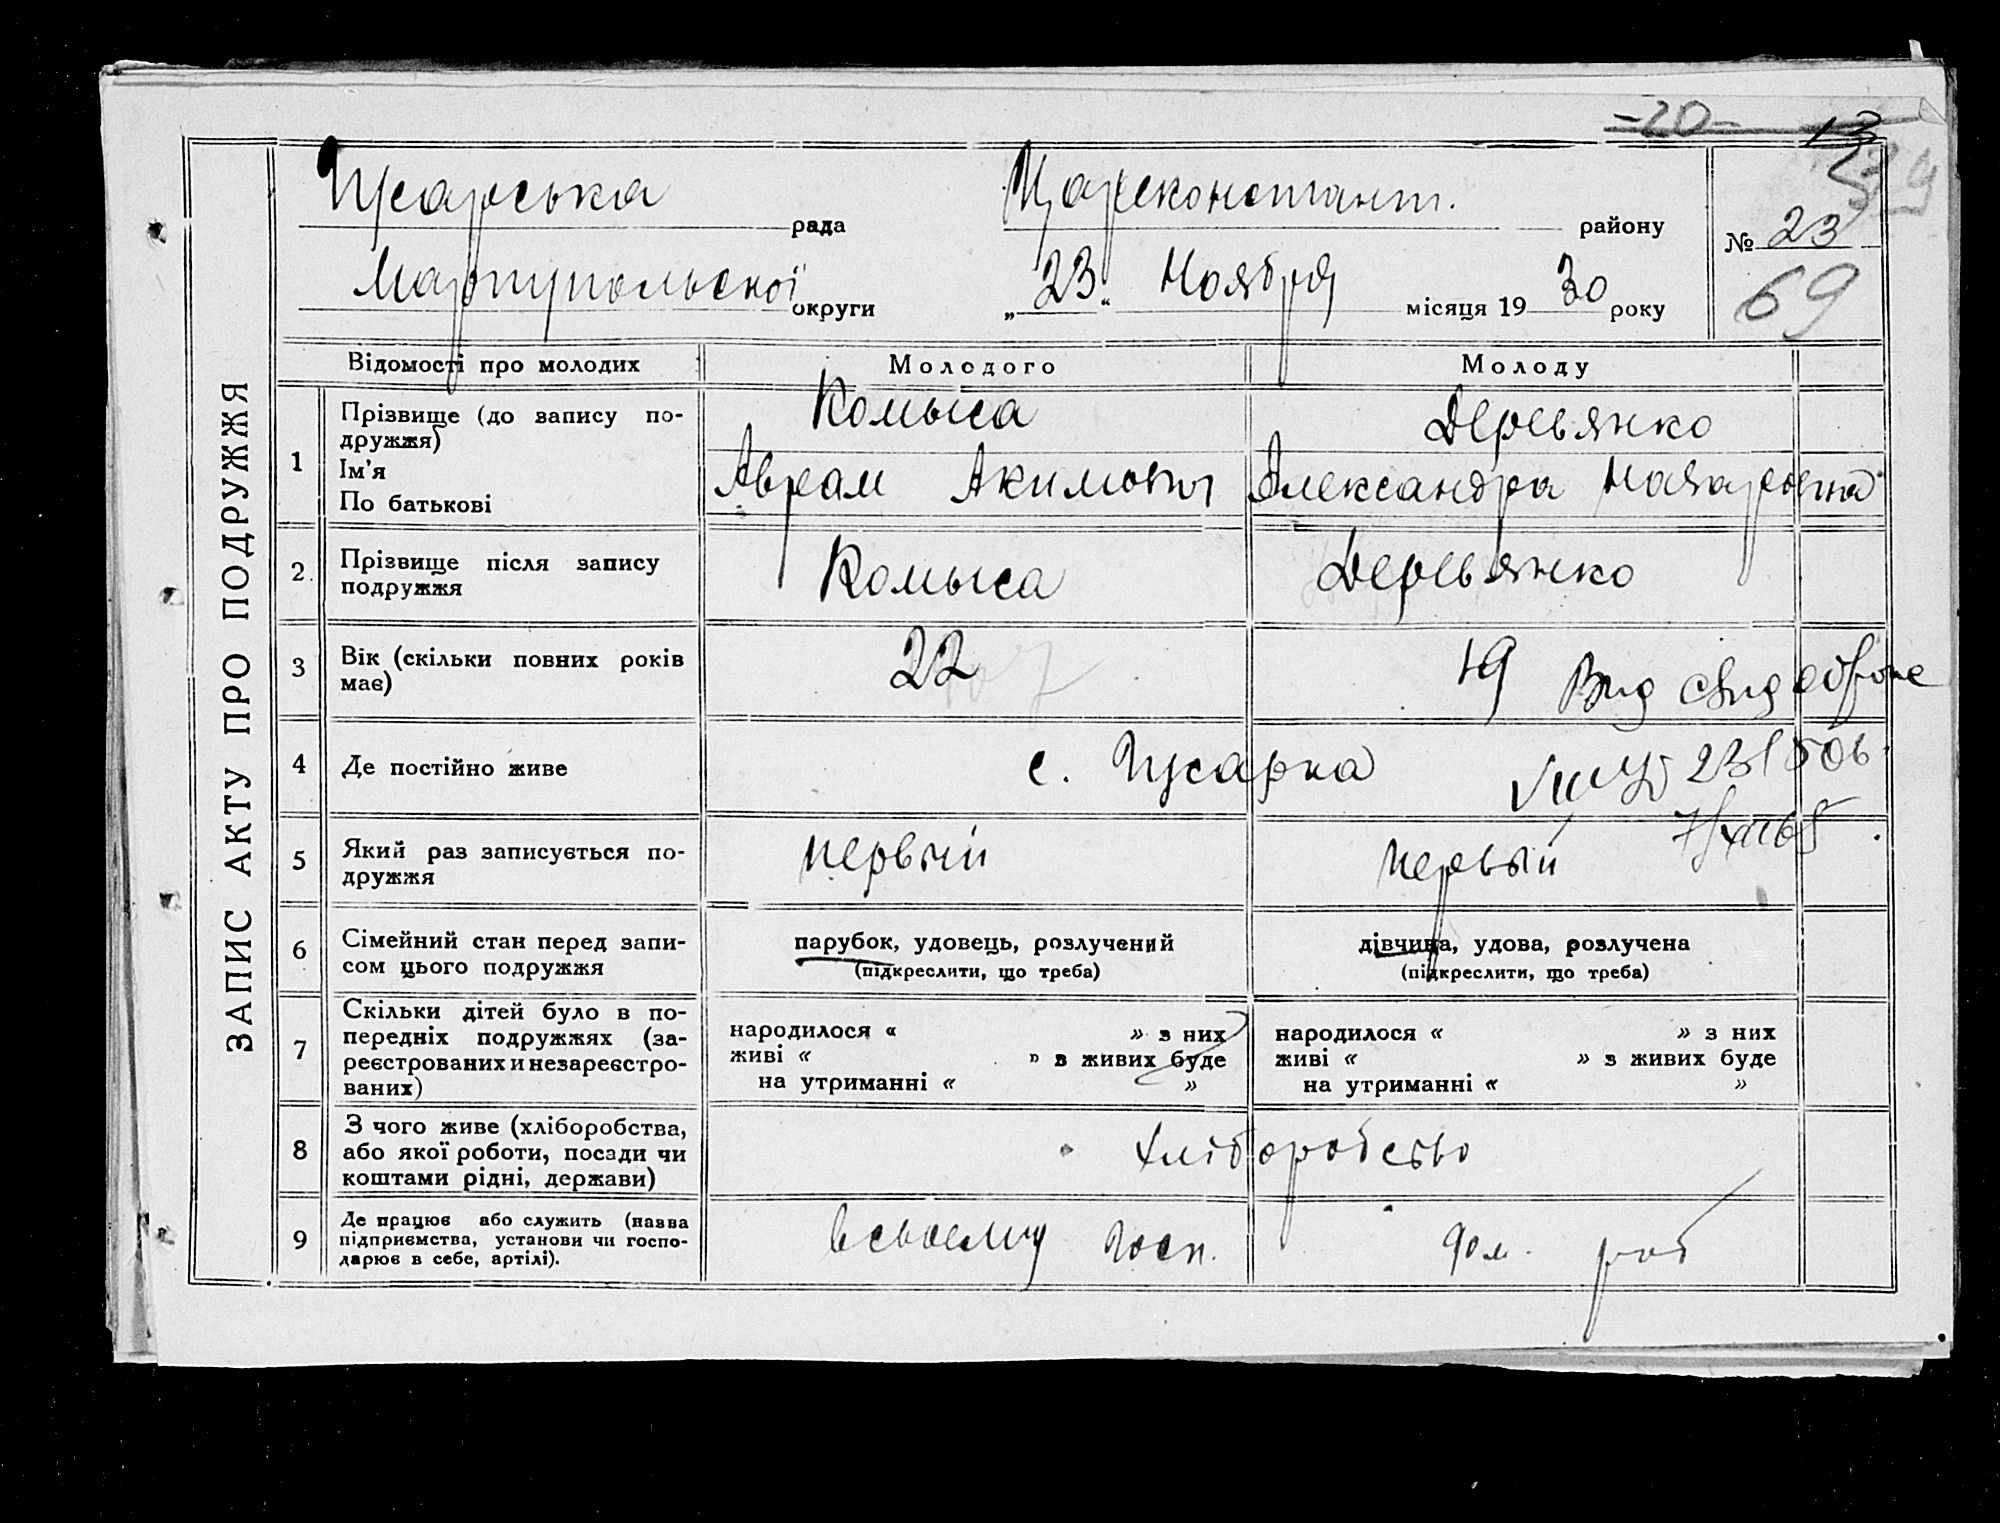 -20-
13
ЗАПИС АКТУ ПРО ПОДРУЖЖЯ
Гусарська рада Цареконстант. району
№ 23
Маріупольскої округи „23“ Ноября місяця 1930 року
69
Відомості про молодих Молодого Молоду
1 Прізвище (до запису по-
дружжя)
Ім'я
По батькові
Комыса Деревянко
Аврам Акимович Александра Назаровна
2. Прізвище після запису
подружжя
Комыса Деревянко
3 Вік (скільки повних років
має)
22 19
4 Де постійно живе с. Гусарка
5 Який раз записується по-
дружжя
первый первый
6 Сімейний стан перед запи-
сом цього подружжя
парубок, удовець, розлучений
(підкреслити, що треба)
дівчина, удова, розлучена
(підкреслити, що треба)
7 Скільки дітей було в по-
передніх подружжях (за-
реєстрованих и незареєстро-
ваних)
народилося « » з них
живі « » з живих буде
на утриманні « »
народилося « » з них
живі « » з живих буде
на утриманні « »
8 З чого живе (хліборобства,
або якої роботи, посади чи
коштами рідні, держави)
хліборобство
9 Де працює або служить (назва
підприємства, установи чи госпо-
дарює в себе, артілі).
в своєму госп. дом. роб